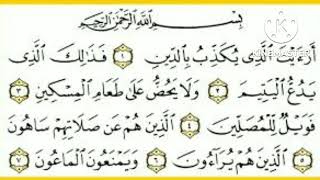 بِسْمِ اللَّهِ الرَّحْمَٰنِ الرَّحِيمِ
أَرَءَيْتَ الَّذِي يُكَذِّبُ بِالدِّينِ ١ فَذَٰلِكَ الَّذِي
يَدُعُّ الْيَتِيمَ ٢ وَلَا يَحُضُّ عَلَىٰ طَعَامِ الْمِسْكِينِ ٣
فَوَيْلٌ لِّلْمُصَلِّينَ ٤ الَّذِينَ هُمْ عَن صَلَاتِهِمْ سَاهُونَ
٥ الَّذِينَ هُمْ يُرَاءُونَ ٦ وَيَمْنَعُونَ الْمَاعُونَ ٧